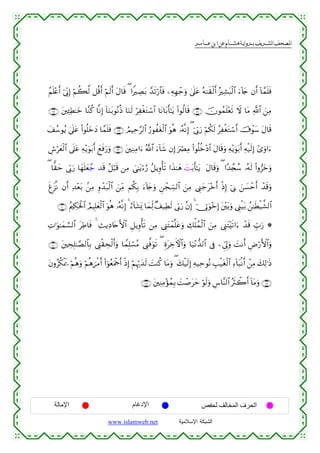 المصحف الشريف برواية هشام عن ابن عامر
فَلَمَّآ أَن جَآءَ ٱلْبَشِيرُ أَلْقَىٰهُ عَلَىٰ وَجْهِهِۦ فَٱرْتَدَّ بَصِيرًا قَالَ أَلَمْ أَقُل لَّكُمْ إِنِّىٓ أَعْلَمُ
مِنَ ٱللَّهِ مَا لَا تَعْلَمُونَ قَالُوا۟ يَٰٓأَبَانَا ٱسْتَغْفِرْ لَنَا ذُنُوبَنَآ إِنَّا كُنَّا خَٰطِـِٔينَ
قَالَ سَوْفَ أَسْتَغْفِرُ لَكُمْ رَبِّىٓ إِنَّهُۥ هُوَ ٱلْغَفُورُ ٱلرَّحِيمُ فَلَمَّا دَخَلُوا۟ عَلَىٰ يُوسُفَ
ءَاوَىٰٓ إِلَيْهِ أَبَوَيْهِ وَقَالَ ٱدْخُلُوا۟ مِصْرَ إِن شَآءَ ٱللَّهُ ءَامِنِينَ وَرَفَعَ أَبَوَيْهِ عَلَى ٱلْعَرْشِ
وَخَرُّوا۟ لَهُۥ سُجَّدًا وَقَالَ يَٰٓأَبَتَ هَٰذَا تَأْوِيلُ رُءْيَٰىَ مِن قَبْلُ قَدْ جَعَلَهَا رَبِّى حَقًّا
وَقَدْ أَحْسَنَ بِىٓ إِذْ أَخْرَجَنِى مِنَ ٱلسِّجْنِ وَجَآءَ بِكُم مِّنَ ٱلْبَدْوِ مِنۢ بَعْدِ أَن نَّزَغَ
ٱلشَّيْطَٰنُ بَيْنِى وَبَيْنَ إِخْوَتِىٓ إِنَّ رَبِّى لَطِيفٌ لِّمَا يَشَآءُ إِنَّهُۥ هُوَ ٱلْعَلِيمُ ٱلْحَكِيمُ
رَبِّ قَدْ ءَاتَيْتَنِى مِنَ ٱلْمُلْكِ وَعَلَّمْتَنِى مِن تَأْوِيلِ ٱلْأَحَادِيثِ فَاطِرَ ٱلسَّمَٰوَٰتِ
وَٱلْأَرْضِ أَنتَ وَلِىِّۦ فِى ٱلدُّنْيَا وَٱلْءَاخِرَةِ تَوَفَّنِى مُسْلِمًا وَأَلْحِقْنِى بِٱلصَّٰلِحِينَ
ذَٰلِكَ مِنْ أَنۢبَآءِ ٱلْغَيْبِ نُوحِيهِ إِلَيْكَ وَمَا كُنتَ لَدَيْهِمْ إِذْ أَجْمَعُوٓا۟ أَمْرَهُمْ وَهُمْ يَمْكُرُونَ
وَمَآ أَكْثَرُ ٱلنَّاسِ وَلَوْ حَرَصْتَ بِمُؤْمِنِينَ
الحرف المخالف لحفص الإدغام الإمالة
الشبكة الإسلامية www.islamweb.net